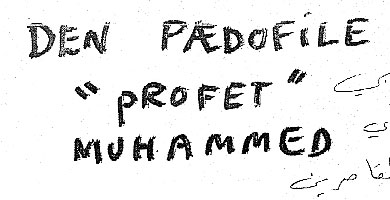 DEN PÆDOFiLE
"pROFET"
MUHAMMED